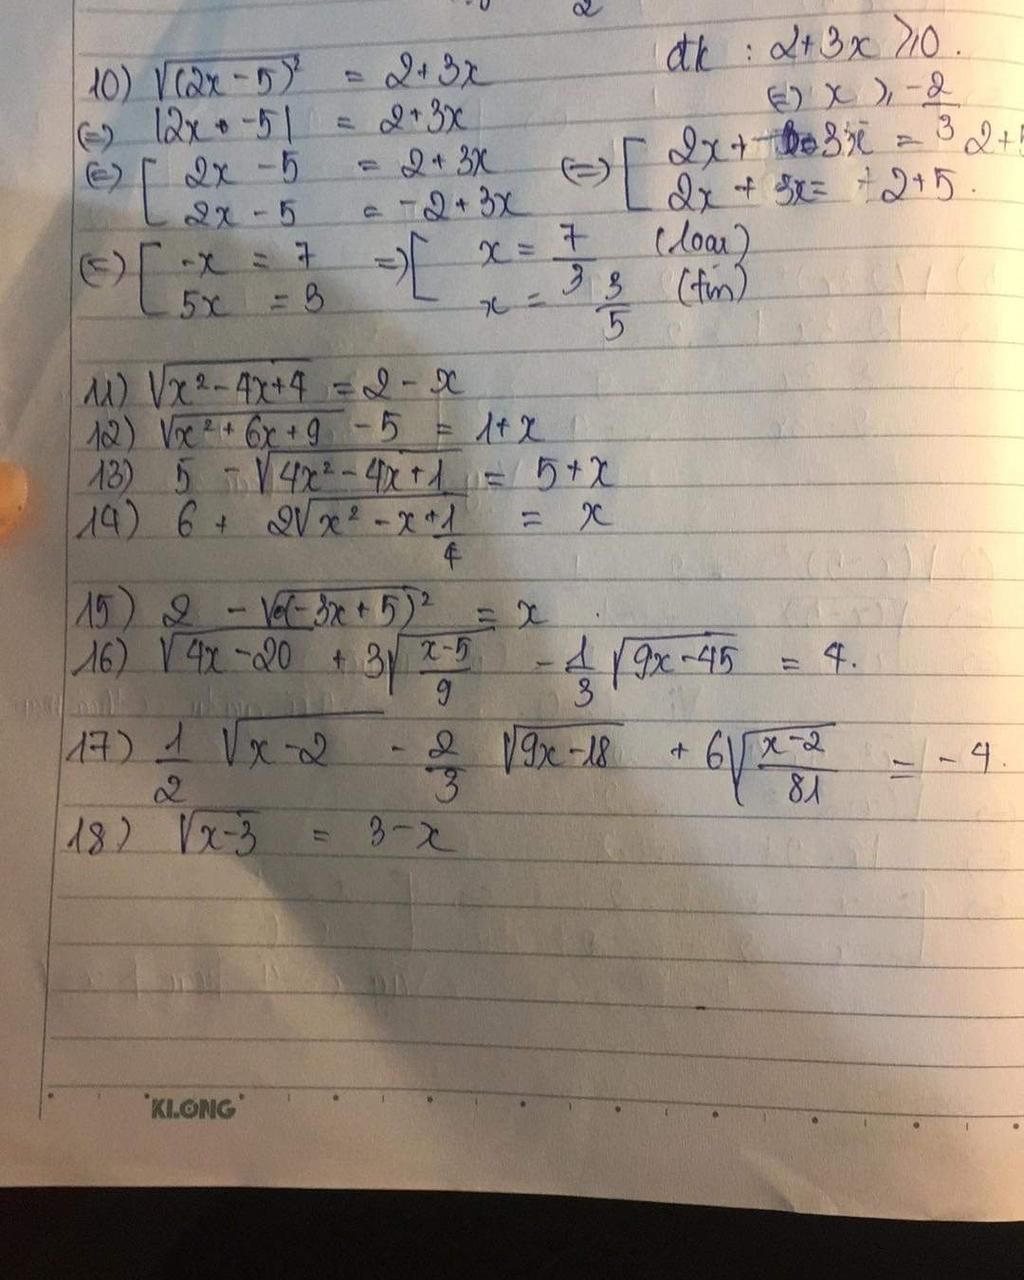 2
10) √(2x - 5)² = 2+3x đk : 2+3x ⩾ 0.
(=) |2x - 5| = 2+3x (=) x ⩾ -2/3
(=) [ 2x - 5 = 2+3x (=) [ 2x + 3x = 2+5
2x - 5 = -2+3x 2x + 3x = -2+5.
(=) [ -x = 7 =) [ x = 7/3 (loại)
5x = 3 x = 3/5 (t/m)
11) √x² - 4x+4 = 2 - x
12) √x² + 6x + 9 - 5 = 1+x
13) 5 - √4x² - 4x + 1 = 5+x
14) 6 + 2√x² - x + 1/4 = x
15) 2 - √(-3x + 5)² = x
16) √4x - 20 + 3√x-5/9 - 1/3 √9x - 45 = 4.
17) 1/2 √x - 2 - 2/3 √9x - 18 + 6√x-2/81 = - 4.
18) √x-3 = 3 - x
KLONG